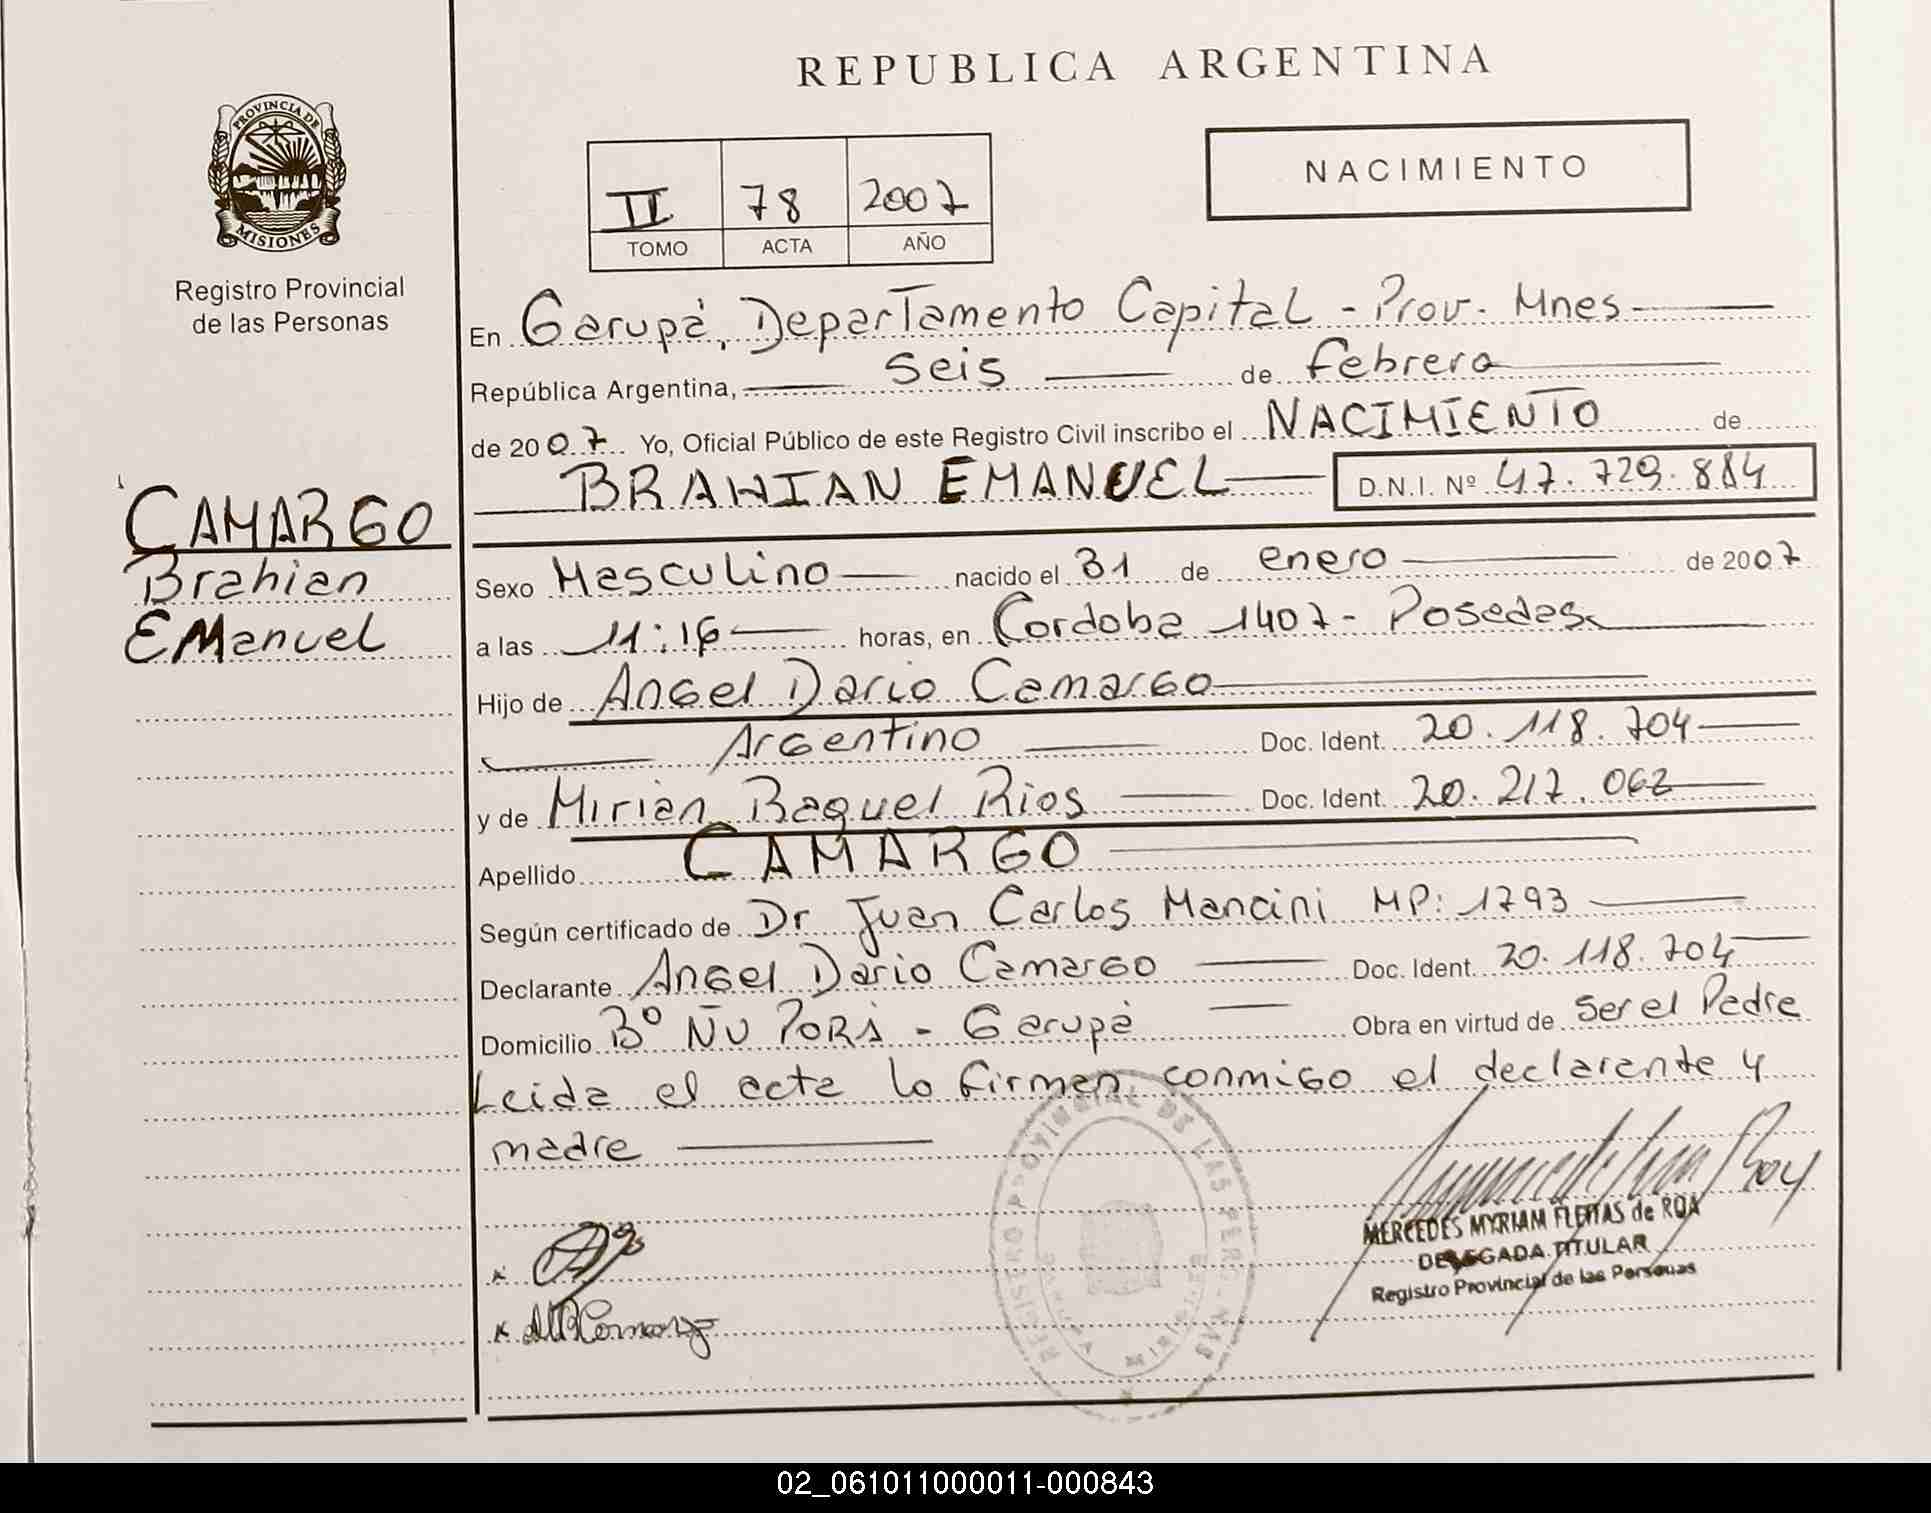 REPUBLICA ARGENTINA
PROVINCIA DE
MISIONES
Registro Provincial
de las Personas
II 78 2007
TOMO ACTA AÑO
NACIMIENTO
En Garupá, Departamento Capital - Prov. Mnes
República Argentina, seis de Febrero
de 2007 Yo, Oficial Público de este Registro Civil inscribo el NACIMIENTO de
BRAHIAN EMANUEL D.N.I. Nº 47.729.884
CAMARGO
Brahian
EManuel
Sexo Masculino nacido el 31 de enero de 2007
a las 11:16 horas, en Cordoba 1407 - Posadas
Hijo de Angel Dario Camargo
Argentino Doc. Ident. 20.118.704
y de Mirian Raquel Rios Doc. Ident. 20.217.062
Apellido CAMARGO
Según certificado de Dr Juan Carlos Mancini MP: 1793
Declarante Angel Dario Camargo Doc. Ident. 20.118.704
Domicilio Bº ÑU PORÁ - Garupá Obra en virtud de ser el Padre
Leida el acta lo firman conmigo el declarante y
madre
REGISTRO PROVINCIAL DE LAS PERSONAS
MISIONES
MERCEDES MYRIAM FLEITAS de ROA
DELEGADA TITULAR
Registro Provincial de las Personas
02_061011000011-000843